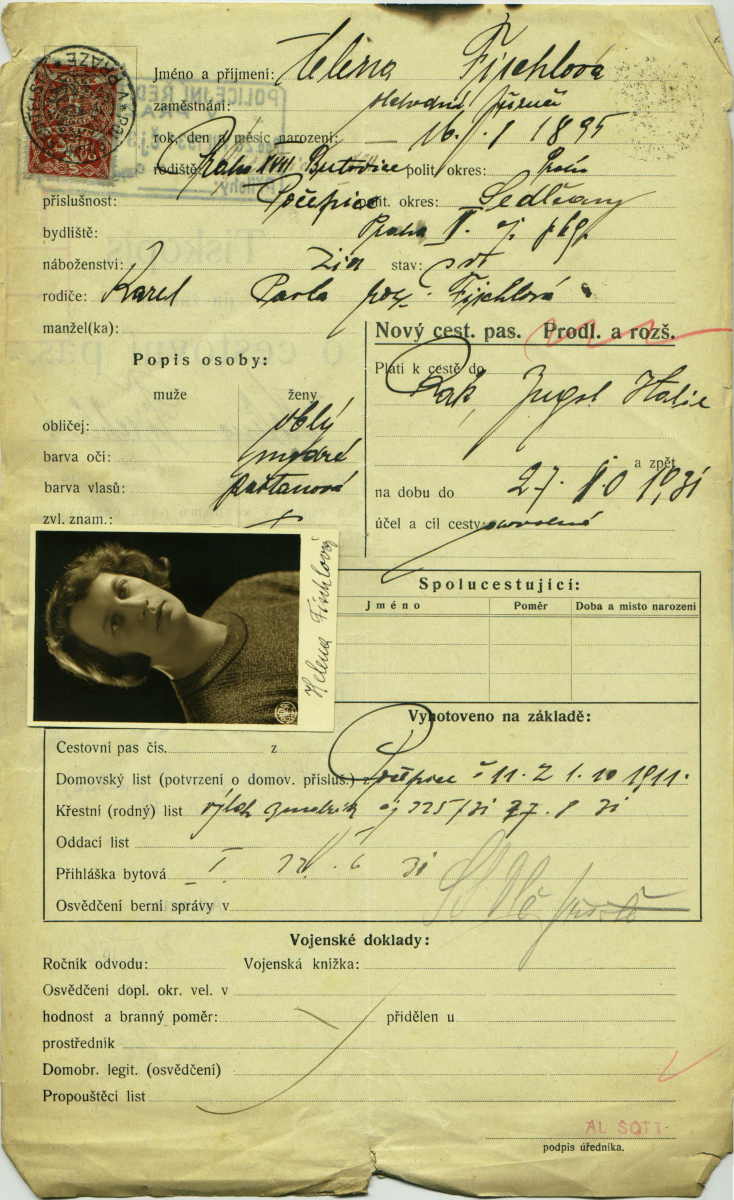 Jméno a příjmení: Helena Fischlová
zaměstnání:
rok, den a měsíc narození: 16. 1 1895
rodiště: Praha XVII Butovice polit. okres:
příslušnost: Počepice polit. okres: Sedlčany
bydliště: Praha II.
náboženství: stav:
rodiče: Karel Pavla roz. Fischlová
manžel(ka):
Popis osoby:
muže ženy
obličej:
barva očí: modré
barva vlasů: kaštanová
zvl. znam.:
Nový cest. pas. Prodl. a rozš.
Platí k cestě do Rak, Jugosl Italie
a zpět
na dobu do 27. 10 1931
účel a cíl cesty:
Helena Fischlová
Spolucestující:
Jméno Poměr Doba a místo narození
Vyhotoveno na základě:
Cestovní pas čis. z
Domovský list (potvrzení o domov. přísluš.) Počepice č 11. Z 1. 10 1911.
Křestní (rodný) list
Oddací list
Přihláška bytová
Osvědčení berní správy v
Vojenské doklady:
Ročník odvodu: Vojenská knížka:
Osvědčení dopl. okr. vel. v
hodnost a branný poměr: přidělen u
prostředník
Domobr. legit. (osvědčení)
Propouštěcí list
podpis úředníka.